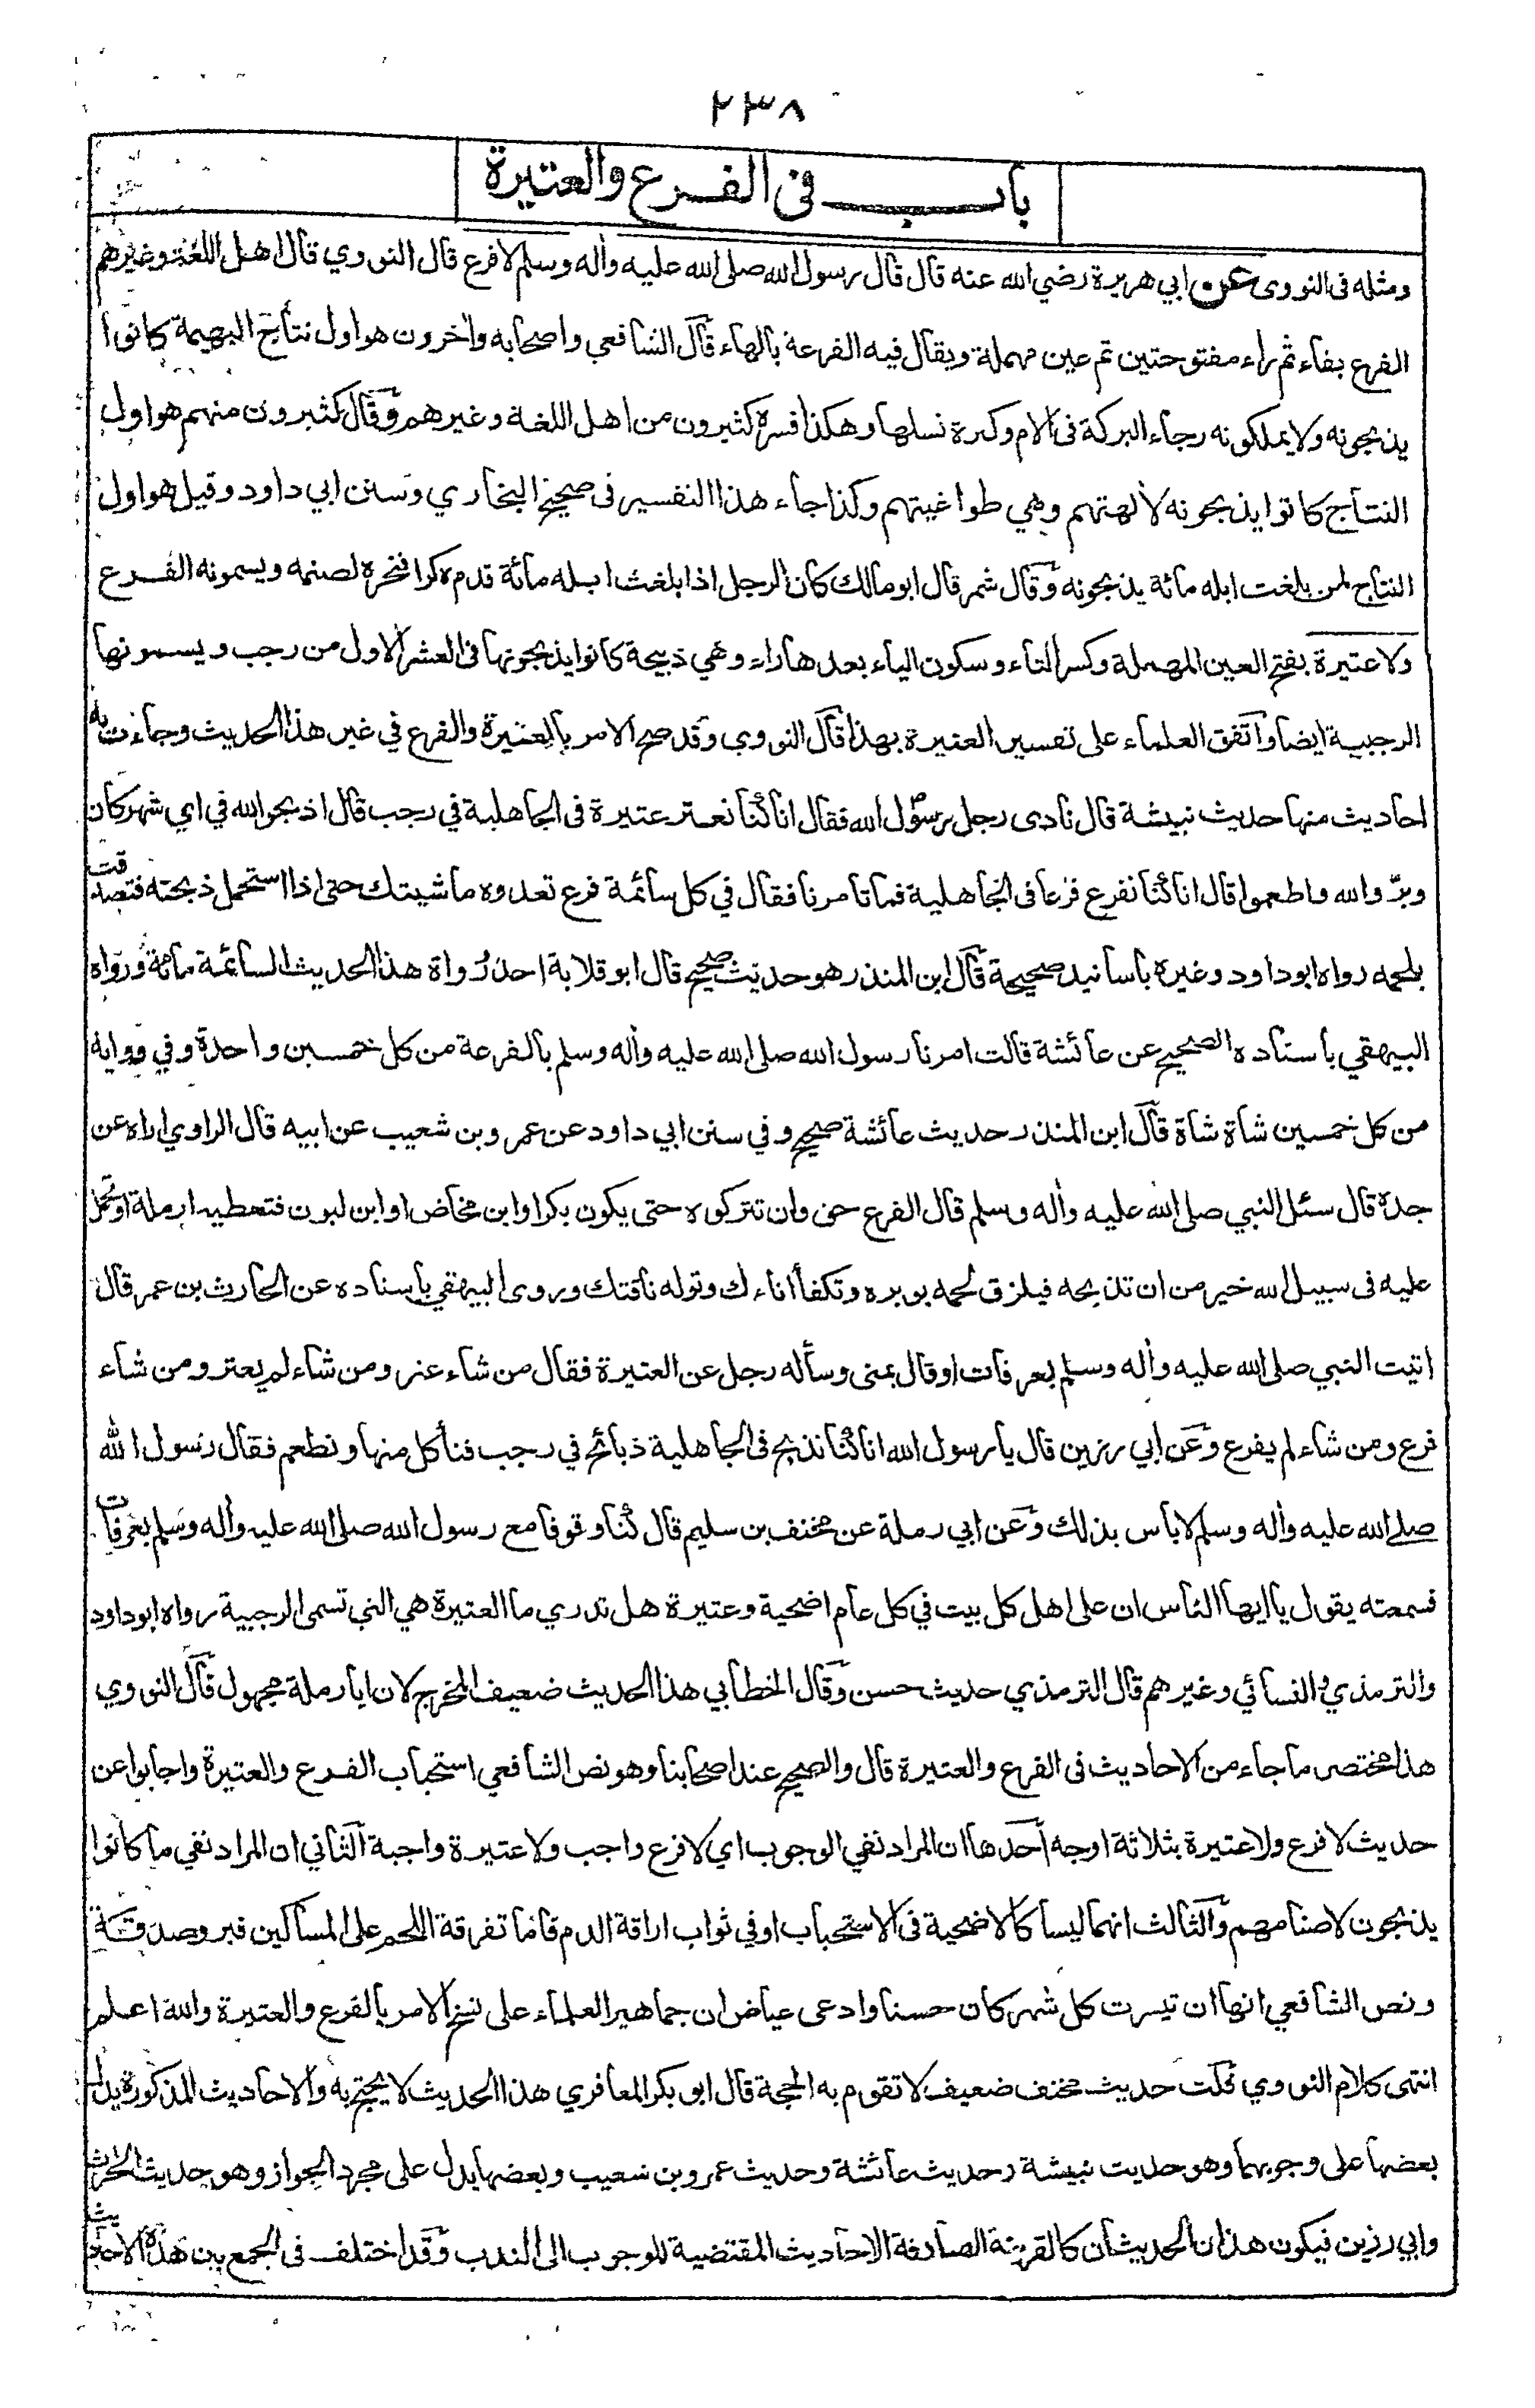 ٢٣٨
باب في الفرع والعتيرة
ومثله فى النووى عن ابي هريرة رضي الله عنه قال قال رسول الله صلى الله عليه واٰله وسلم لا فرع قال النووي قال اهل اللغة وغيرهم
الفرع بفاء ثم راء مفتوحتين ثم عين مهملة ويقال فيه الفرعة بالهاء قال الشافعي واصحابه واٰخرون هو اول نتاج البهيمة كانوا
يذبحونه ولا يملكونه رجاء البركة فى الام وكثرة نسلها وهكذا فسره كثيرون من اهل اللغة وغيرهم وقال كثيرون منهم هو اول
النتاج كانوا يذبحونه لاٰلهتهم وهي طواغيتهم وكذا جاء هذا التفسير فى صحيح البخاري وسنن ابي داود وقيل هو اول
النتاج لمن بلغت ابله مائة يذبحونه وقال شمر قال ابو مالك كان الرجل اذا بلغت ابله مائة قدم بكرا فنحره لصنمه ويسمونه الفرع
ولا عتيرة بفتح العين المهملة وكسر التاء وسكون الياء بعدها راء وهي ذبيحة كانوا يذبحونها فى العشر الاول من رجب ويسمونها
الرجبية ايضا واتفق العلماء على تفسير العتيرة بهذا قال النووي وقد صح الامر بالعتيرة والفرع في غير هذا الحديث وجاءت به
احاديث منها حديث نبيشة قال نادى رجل رسول الله فقال انا كنا نعتر عتيرة فى الجاهلية في رجب قال اذبحوا لله في اي شهر كان
وبرّوا لله واطعموا قال انا كنا نفرع فرعا فى الجاهلية فما تامرنا فقال في كل سائمة فرع تغدوه ماشيتك حتى اذا استحمل ذبحته فتصدقت
بلحمه رواه ابو داود وغيره باسانيد صحيحة قال ابن المنذر هو حديث صحيح قال ابو قلابة احد رواة هذا الحديث السائمة مائة ورواه
البيهقي باسناده الصحيح عن عائشة قالت امرنا رسول الله صلى الله عليه واٰله وسلم بالفرعة من كل خمسين واحدة وفي رواية
من كل خمسين شاة شاة قال ابن المنذر حديث عائشة صحيح وفي سنن ابي داود عن عمرو بن شعيب عن ابيه قال الراوي اراه عن
جده قال سئل النبي صلى الله عليه واٰله وسلم قال الفرع حق وان تتركوه حتى يكون بكرا وابن مخاض او ابن لبون فتعطيه ارملة او تحمل
عليه فى سبيل الله خير من ان تذبحه فيلزق لحمه بوبره وتكفأ اناءك وتوله ناقتك وروى البيهقي باسناده عن الحارث بن عمر قال
اتيت النبي صلى الله عليه واٰله وسلم بعرفات او قال بمنى وسأله رجل عن العتيرة فقال من شاء عتر ومن شاء لم يعتر ومن شاء
فرع ومن شاء لم يفرع وعن ابي رزين قال يا رسول الله انا كنا نذبح فى الجاهلية ذبائح في رجب فنأكل منها ونطعم فقال رسول الله
صلى الله عليه واٰله وسلم لا باس بذلك وعن ابي رملة عن مخنف بن سليم قال كنا وقوفا مع رسول الله صلى الله عليه واٰله وسلم بعرفات
فسمعته يقول يا ايها الناس ان على اهل كل بيت في كل عام اضحية وعتيرة هل تدري ما العتيرة هي التي تسمى الرجبية رواه ابو داود
والترمذي والنسائي وغيرهم قال الترمذي حديث حسن وقال الخطابي هذا الحديث ضعيف المخرج لان ابا رملة مجهول قال النووي
هذا مختصر ما جاء من الاحاديث فى الفرع والعتيرة قال والصحيح عند اصحابنا وهو نص الشافعي استحباب الفرع والعتيرة واجابوا عن
حديث لا فرع ولا عتيرة بثلاثة اوجه احدها ان المراد نفي الوجوب اي لا فرع واجب ولا عتيرة واجبة الثاني ان المراد نفي ما كانوا
يذبحون لاصنامهم والثالث انهما ليسا كالاضحية فى الاستحباب او في ثواب اراقة الدم فاما تفرقة اللحم على المساكين فبر وصدقة
ونص الشافعي انها ان تيسرت كل شهر كان حسنا وادعى عياض ان جماهير العلماء على نسخ الامر بالفرع والعتيرة والله اعلم
انتهى كلام النووي قلت حديث مخنف ضعيف لا تقوم به الحجة قال ابو بكر المعافري هذا الحديث لا يحتج به والاحاديث المذكورة يدل
بعضها على وجوبهما وهو حديث نبيشة وحديث عائشة وحديث عمرو بن شعيب وبعضها يدل على مجرد الجواز وهو حديث الحرث
وابي رزين فيكون هذان الحديثان كالقرينة الصارفة الاحاديث المقتضية للوجوب الى الندب وقد اختلف فى الجمع بين هذه الاحاديث